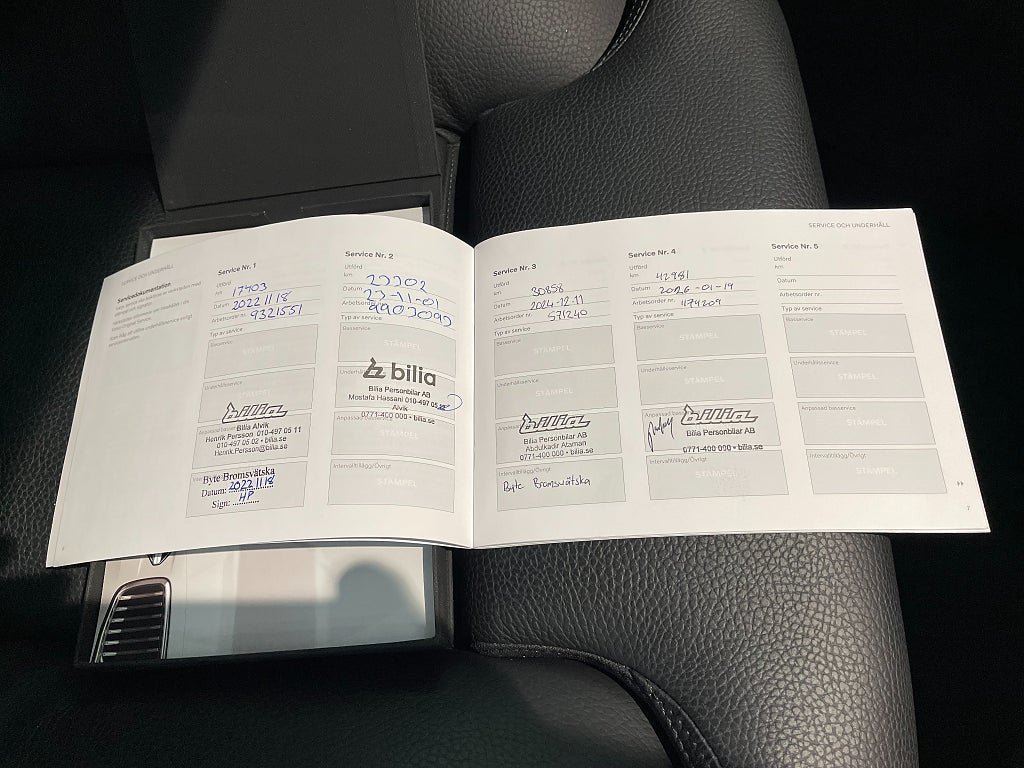 SERVICE OCH UNDERHÅLL
Servicedokumentation
Service Nr. 1
Utförd
km 17403
Datum 2022 11 18
Arbetsorder nr. 9321551
Typ av service
Basservice
STÄMPEL
Underhållsservice
bilia
Bilia Alvik
Henrik Persson 010-497 05 11
010-497 05 02 • bilia.se
Henrik.Persson@bilia.se
Byte Bromsvätska
Datum: 2022 11 18
Sign: HP
Service Nr. 2
Utförd
km
Datum 23-11-01
Arbetsorder nr.
Typ av service
STÄMPEL
Underhållsservice
bilia
Bilia Personbilar AB
Mostafa Hassani 010-497 05
Alvik
0771-400 000 • bilia.se
STÄMPEL
Intervalltillägg/Övrigt
STÄMPEL
SERVICE OCH UNDERHÅLL
Service Nr. 3
Utförd
km 30858
Datum 2024-12-11
Arbetsorder nr. 571240
Typ av service
Basservice
STÄMPEL
Underhållsservice
STÄMPEL
bilia
Bilia Personbilar AB
Abdulkadir Ataman
0771-400 000 • bilia.se
Intervalltillägg/Övrigt
Byte Bromsvätska
Service Nr. 4
Utförd
km 42981
Datum 2026-01-19
Arbetsorder nr. 1174209
Typ av service
Basservice
STÄMPEL
Underhållsservice
STÄMPEL
bilia
Bilia Personbilar AB
0771-400 000 • bilia.se
Intervalltillägg/Övrigt
STÄMPEL
Service Nr. 5
Utförd
km
Datum
Arbetsorder nr.
Typ av service
Basservice
STÄMPEL
Underhållsservice
STÄMPEL
Anpassad basservice
STÄMPEL
Intervalltillägg/Övrigt
STÄMPEL
7